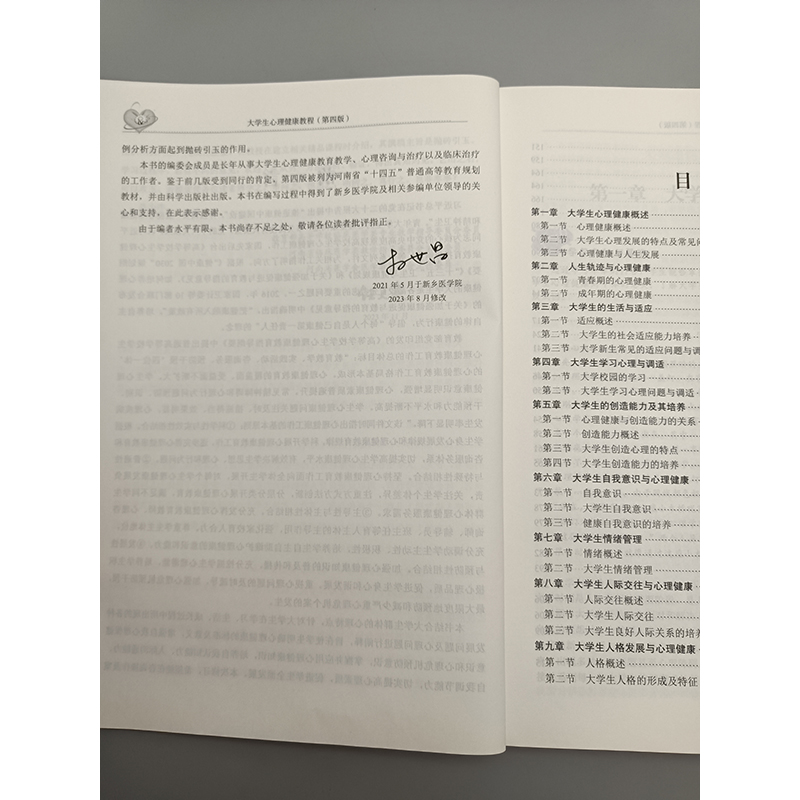 大学生心理健康教程（第四版）
例分析方面起到抛砖引玉的作用。
本书的编委会成员是长年从事大学生心理健康教育教学、心理咨询与治疗以及临床治疗
的工作者。鉴于前几版受到同行的肯定，第四版被列为河南省“十四五”普通高等教育规划
教材，并由科学出版社出版。本书在编写过程中得到了新乡医学院及相关参编单位领导的关
心和支持，在此表示感谢。
由于编者水平有限，本书尚存不足之处，敬请各位读者批评指正。
2021 年 5 月于新乡医学院
2023 年 8 月修改
目
第一章 大学生心理健康概述
第一节 心理健康概述
第二节 大学生心理发展的特点及常见问
第三节 心理健康与人生发展
第二章 人生轨迹与心理健康
第一节 青春期的心理健康
第二节 成年期的心理健康
第三章 大学生的生活与适应
第一节 适应概述
第二节 大学生的社会适应能力培养
第三节 大学新生常见的适应问题与调
第四章 大学生学习心理与调适
第一节 大学校园的学习
第二节 大学生学习心理问题与调适
第五章 大学生的创造能力及其培养
第一节 心理健康与创造能力的关系
第二节 创造能力概述
第三节 大学生创造心理的特点
第四节 大学生创造能力的培养
第六章 大学生自我意识与心理健康
第一节 自我意识
第二节 大学生自我意识
第三节 健康自我意识的培养
第七章 大学生情绪管理
第一节 情绪概述
第二节 大学生情绪管理
第八章 大学生人际交往与心理健康
第一节 人际交往概述
第二节 大学生人际交往
第三节 大学生良好人际关系的培养
第九章 大学生人格发展与心理健康
第一节 人格概述
第二节 大学生人格的形成及特征